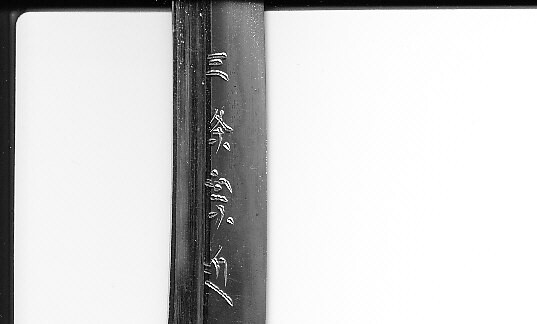 三条宗近